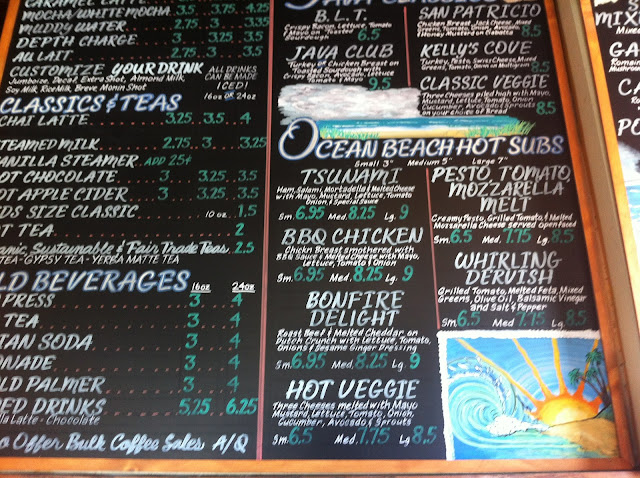 CARAMEL LATTE
MOCHA/WHITE MOCHA 3.5 3.75 4.25
MUDDY WATER 2.75 3 3.5
DEPTH CHARGE 3 3.25 3.5
AU LAIT 2.75 3 3.5
CUSTOMIZE YOUR DRINK
Jumboize, Decaf, Extra Shot, Almond Milk,
Soy Milk, Rice Milk, Breve, Monin Shot
ALL DRINKS
CAN BE MADE
ICED!
16oz OR 24oz
CLASSICS & TEAS
CHAI LATTE 3.25 3.5 4
STEAMED MILK 2.75 3 3.25
VANILLA STEAMER ADD 25¢
HOT CHOCOLATE 3 3.25 3.5
HOT APPLE CIDER 3 3.25 3.5
KIDS SIZE CLASSIC 10 oz. 1.5
HOT TEA 2
Organic, Sustainable & Fair Trade Teas 2.5
TEA - GYPSY TEA - YERBA MATTE TEA
COLD BEVERAGES 16oz 24oz
PRESS 3 4
TEA 3 4
ITALIAN SODA 3 4
LEMONADE 3 4
ARNOLD PALMER 3 4
DRINKS 5.25 6.25
Latte - Chocolate
Offer Bulk Coffee Sales A/Q
JAVA CLASSICS
B.L.T.
Crispy Bacon, Lettuce, Tomato
& Mayo on Toasted
Sourdough 6.5
JAVA CLUB
Turkey or Chicken Breast on
Toasted Sourdough with
Crispy Bacon, Avocado,
Lettuce, Tomato
& Mayo 9.5
SAN PATRICIO
Chicken Breast, Jack Cheese, Mixed
Greens, Tomato, Onion, Avocado
& Honey Mustard on Ciabatta 8.5
KELLY'S COVE
Turkey, Pesto, Swiss Cheese, Mixed
Greens, Tomato, Onion on Multigrain 8.5
CLASSIC VEGGIE
Swiss Cheese piled high with Mayo,
Mustard, Lettuce, Tomato, Onion
Cucumber, Avocado & Sprouts
on your choice of Bread 8.5
OCEAN BEACH HOT SUBS
Small 3" Medium 5" Large 7"
TSUNAMI
Ham, Salami, Mortadella & Melted Cheese
with Mayo, Mustard, Lettuce, Tomato
Onion, & Special Sauce
Sm. 6.95 Med. 8.25 Lg. 9
BBQ CHICKEN
Chickn Breast smothered with
BBQ Sauce & Melted Cheese with Mayo,
Lettuce, Tomato & Onion
Sm. 6.95 Med. 8.25 Lg. 9
BONFIRE
DELIGHT
Roast Beef & Melted Cheddar on
Dutch Crunch with Lettuce, Tomato,
Onions & Sesame Ginger Dressing
Sm. 6.95 Med. 8.25 Lg 9
HOT VEGGIE
Three Cheeses melted with Mayo
Mustard, Lettuce, Tomato, Onion,
Cucumber, Avocado & Sprouts
Sm. 6.5 Med. 7.75 Lg 8.5
PESTO, TOMATO,
MOZZARELLA
MELT
Creamy Pesto, Grilled Tomato, & Melted
Mozzarella Cheese served openfaced
Sm. 6.5 Med. 7.75 Lg. 8.5
WHIRLING
DERVISH
Grilled Tomato, Melted Feta, Mixed
Greens, Olive Oil, Balsamic Vinegar
and Salt & Pepper
Sm. 6.5 Med. 7.75 Lg. 8.5